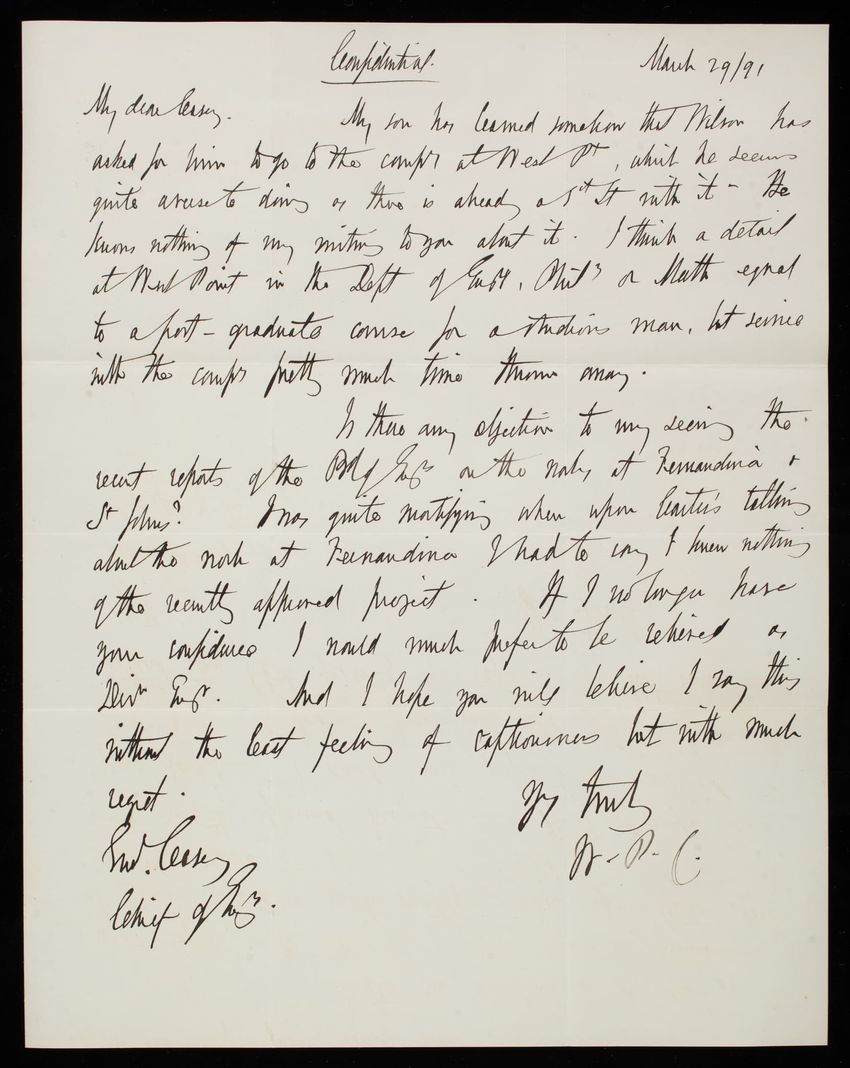 Confidential.
March 29/91
My dear Casey. My son has learned somehow that Wilson has
asked for him to go to the comp'y at West Pt, which he seems
quite averse to doing as there is already a 1st Lt with it - He
knows nothing of my writing to you about it. I think a detail
at West Point in the Dept of Phil'y or Math equal
to a post-graduate course for a studious man, but service
with the comp'y pretty much time thrown away.
Is there any objection to my seeing the
recent reports of the Bd of Eng'rs on the works at Fernandina &
St Johns? I was quite mortified when upon talking
about the work at Fernandina I had to say I knew nothing
of the recently approved project. If I no longer have
your confidence I would much prefer to be relieved as
Divn Eng'r. And I hope you will believe I say this
without the least feeling of captiousness but with much
regret.
Yrs truly
W. P. C.
Genl. Casey
Chief of Eng'rs.